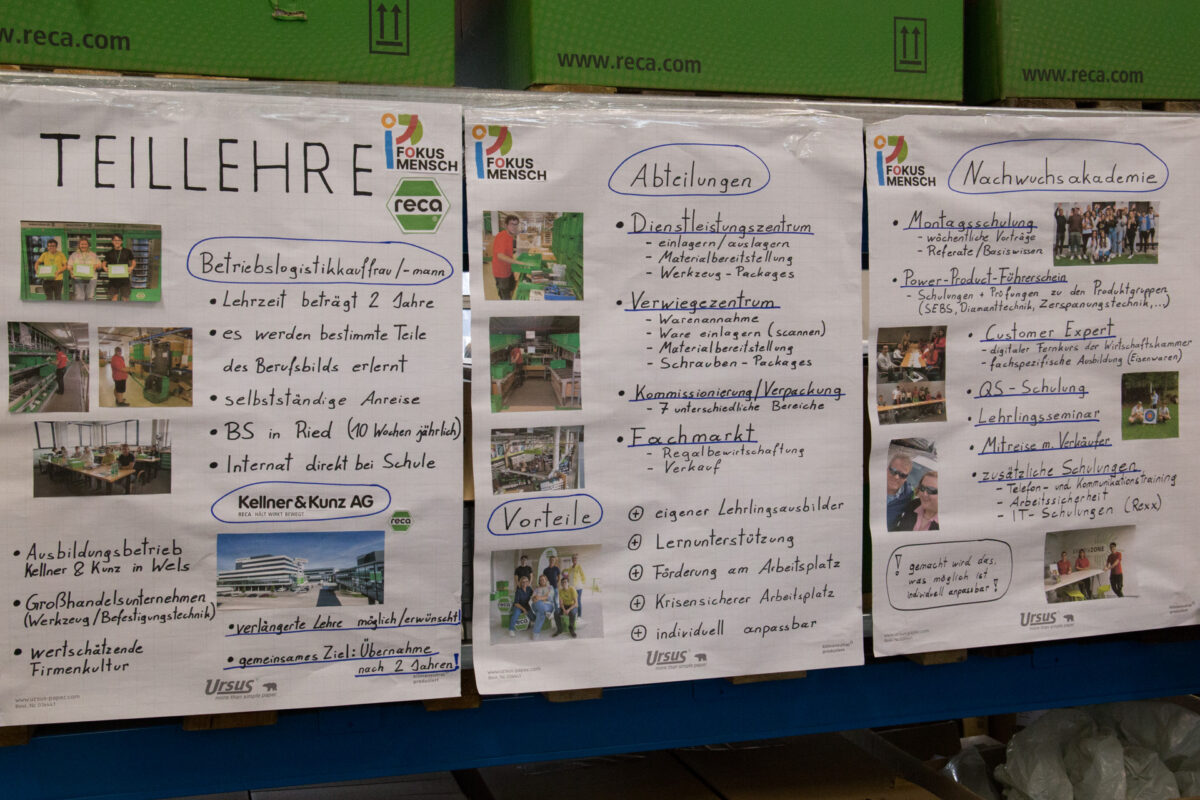 www.reca.com
www.reca.com
www.reca.com
TEILLEHRE
FOKUS
MENSCH
reca
Betriebslogistikkauffrau/-mann
• Lehrzeit beträgt 2 Jahre
• es werden bestimmte Teile
des Berufsbilds erlernt
• selbstständige Anreise
• BS in Ried (10 Wochen jährlich)
• Internat direkt bei Schule
Kellner & Kunz AG
RECA HÄLT WIRKT BEWEGT
reca
• Ausbildungsbetrieb
Kellner & Kunz in Wels
• Großhandelsunternehmen
(Werkzeug/Befestigungstechnik)
• wertschätzende
Firmenkultur
• verlängerte Lehre möglich/erwünscht!
• gemeinsames Ziel: Übernahme
nach 2 Jahren!
www.ursus-paper.com
URSUS
more than simple paper
klimaneutral
produziert
FOKUS
MENSCH
Abteilungen
• Dienstleistungszentrum
- einlagern/auslagern
- Materialbereitstellung
- Werkzeug-Packages
• Verwiegezentrum
- Warenannahme
- Ware einlagern (scannen)
- Materialbereitstellung
- Schrauben-Packages
• Kommissionierung/Verpackung
- 7 unterschiedliche Bereiche
• Fachmarkt
- Regalbewirtschaftung
- Verkauf
Vorteile
⊕ eigener Lehrlingsausbilder
⊕ Lernunterstützung
⊕ Förderung am Arbeitsplatz
⊕ Krisensicherer Arbeitsplatz
⊕ individuell anpassbar
www.ursus-paper.com
URSUS
more than simple paper
klimaneutral
produziert
FOKUS
MENSCH
Nachwuchsakademie
• Montagsschulung
- wöchentliche Vorträge
- Referate/Basiswissen
• Power-Product-Führerschein
- Schulungen + Prüfungen zu den Produktgruppen
(SEBS, Diamanttechnik, Zerspanungstechnik,...)
• Customer Expert
- digitaler Fernkurs der Wirtschaftskammer
- fachspezifische Ausbildung (Eisenwaren)
• QS-Schulung
• Lehrlingsseminar
• Mitreise m. Verkäufer
• zusätzliche Schulungen
- Telefon- und Kommunikationstraining
- Arbeitssicherheit
- IT-Schulungen (Rexx)
! gemacht wird das,
was möglich ist
individuell anpassbar!
www.ursus-paper.com
URSUS
more than simple paper